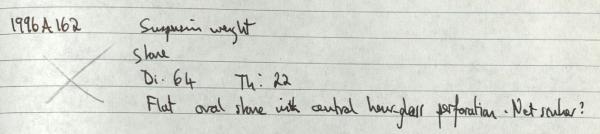 1996A162 Suspension weight
Stone
Di. 64 Th: 22
Flat oval stone with central hourglass perforation. Net sinker?